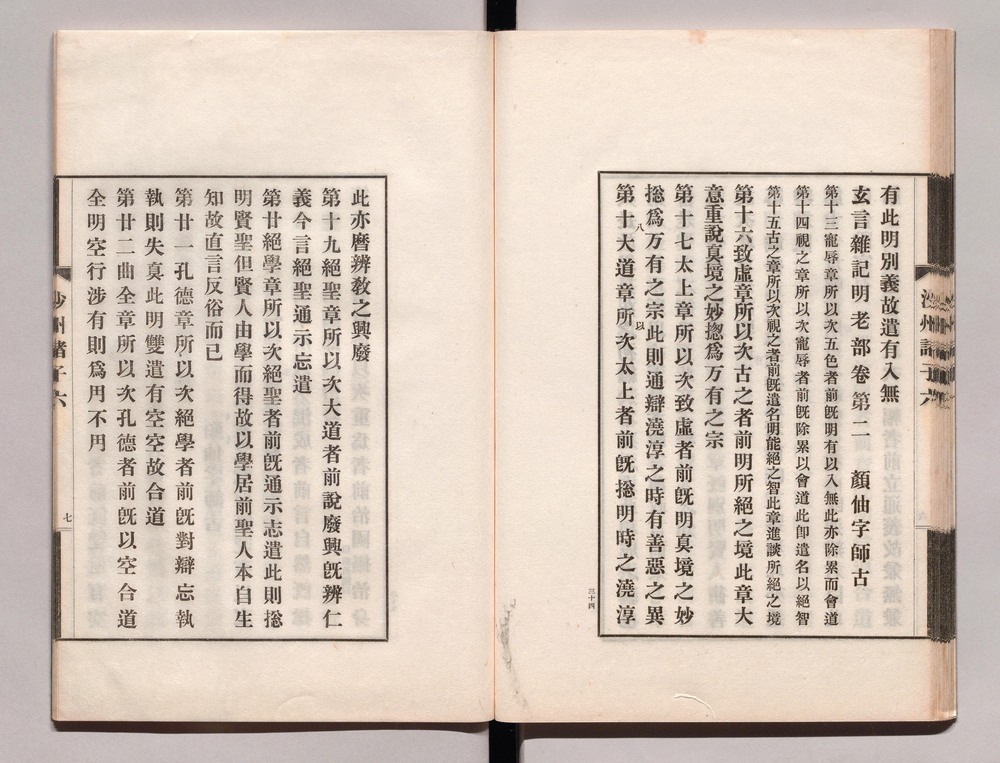 有此明別義故遣有入無
玄言雜記明老部卷第二　顏仙字師古
第十三寵辱章所以次五色者前旣明有以入無此亦除累而會道
第十四視之章所以次寵辱者前旣除累以會道此卽遣名以絕智
第十五古之章所以次視之者前旣遣名明能絕之智此章進談所絕之境
第十六致虛章所以次古之者前明所絕之境此章大
意重說真境之妙揔爲万有之宗
第十七太上章所以次致虛者前旣明真境之妙
揔爲万有之宗此則通辯澆淳之時有善惡之異
第十八大道章所以次太上者前旣揔明時之澆淳
三十四
此亦麿辨敎之興廢
第十九絕聖章所以次大道者前說廢興旣辨仁
義今言絕聖通示忘遣
第廿絕學章所以次絕聖者前旣通示志遣此則揔
明賢聖但賢人由學而得故以學居前聖人本自生
知故直言反俗而已
第廿一孔德章所以次絕學者前旣對辯忘執
執則失真此明雙遣有空空故合道
第廿二曲全章所以次孔德者前旣以空合道
全明空行涉有則爲用不用
沙州諸子六
七